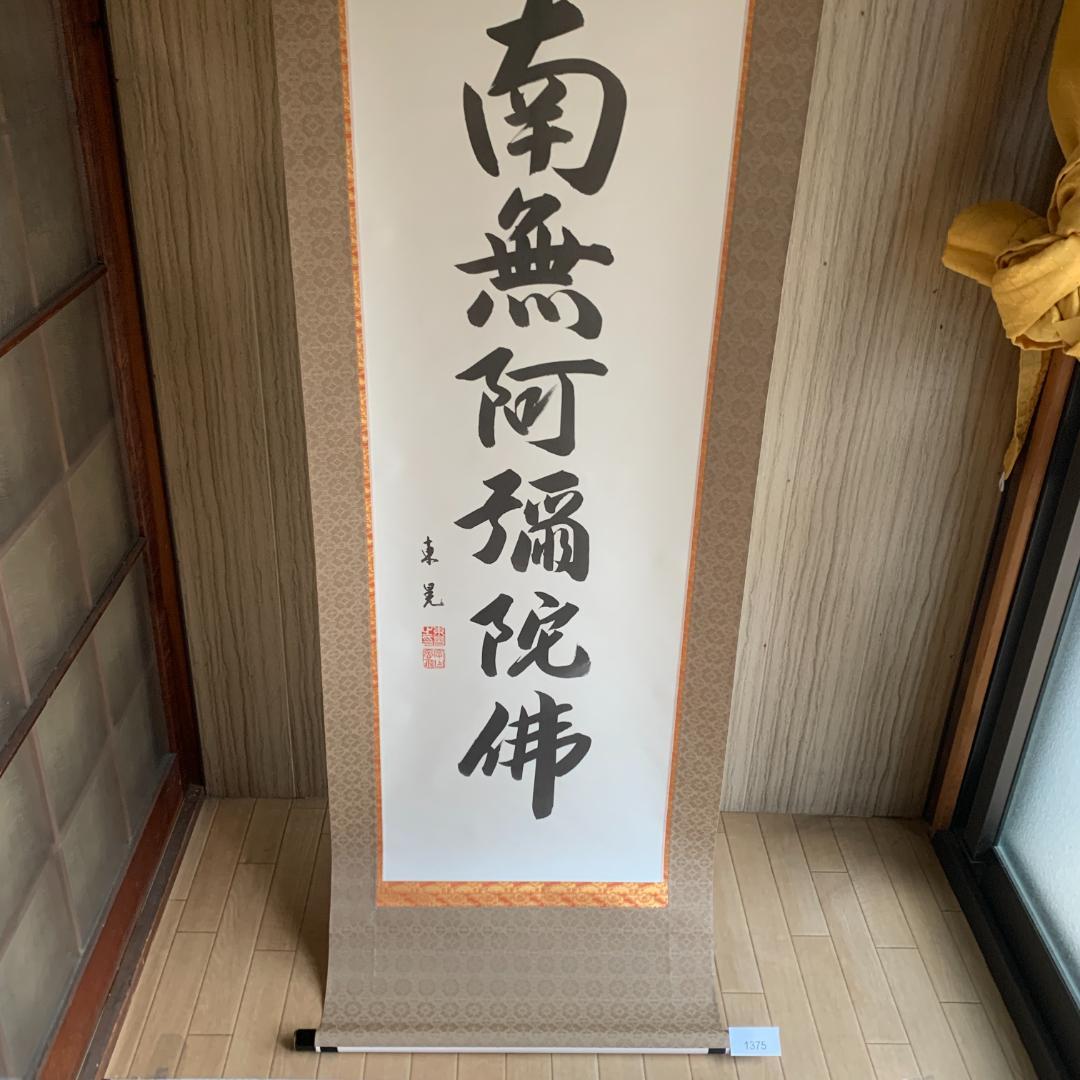 南無阿彌陀佛
東晃
1375